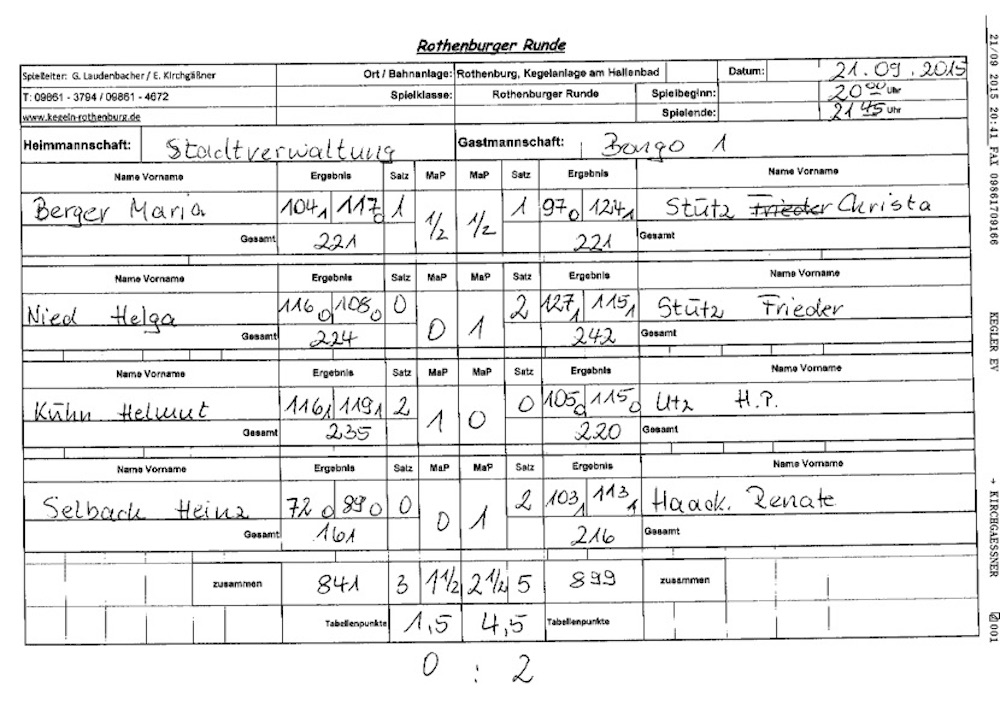 Rothenburger Runde
Spielleiter: G. Laudenbacher / E. Kirchgäßner Ort / Bahnanlage: Rothenburg, Kegelanlage am Hallenbad Datum: 21.09.2015
T: 09861 - 3794 / 09861 - 4672 Spielklasse: Rothenburger Runde Spielbeginn: 20 00 Uhr
www.kegeln-rothenburg.de Spielende: 21 45 Uhr
Heimmannschaft: Stadtverwaltung Gastmannschaft: Bongo 1
Name Vorname Ergebnis Satz MaP MaP Satz Ergebnis Name Vorname
Berger Maria 104 1 117 0 1 1/2 1/2 1 97 0 124 1 Stütz Frieder Christa
Gesamt 221 221 Gesamt
Name Vorname Ergebnis Satz MaP MaP Satz Ergebnis Name Vorname
Nied Helga 116 0 108 0 0 0 1 2 127 1 115 1 Stütz Frieder
Gesamt 224 242 Gesamt
Name Vorname Ergebnis Satz MaP MaP Satz Ergebnis Name Vorname
Kühn Helmut 116 1 119 1 2 1 0 0 105 0 115 0 Utz H.P.
Gesamt 235 220 Gesamt
Name Vorname Ergebnis Satz MaP MaP Satz Ergebnis Name Vorname
Selback Heinz 72 0 89 0 0 0 1 2 103 1 113 1 Haack. Renate
Gesamt 161 216 Gesamt
zusammen 841 3 1 1/2 2 1/2 5 899 zusammen
Tabellenpunkte 1,5 4,5 Tabellenpunkte
0 : 2
21/09 2015 20:41 FAX 09861709166 KEGLER EV → KIRCHGAESSNER 001